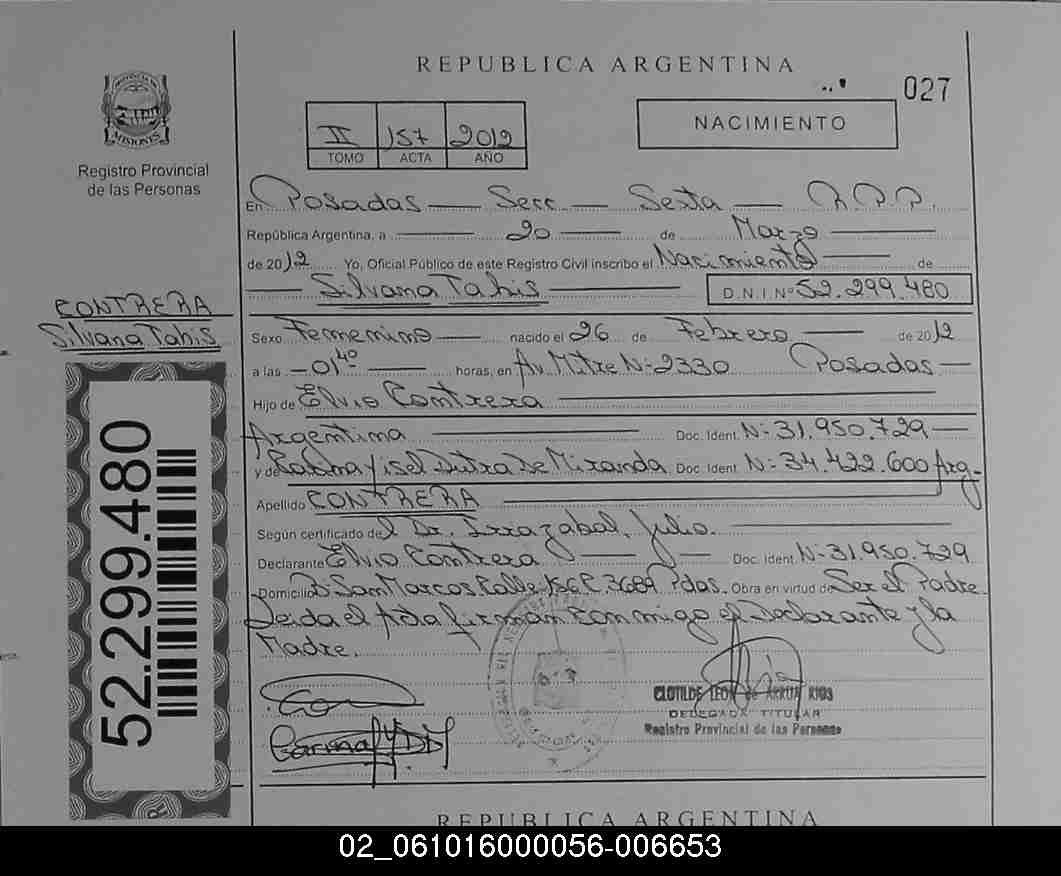 REPUBLICA ARGENTINA
027
NACIMIENTO
II 157 2012
TOMO ACTA AÑO
PROVINCIA DE MISIONES
Registro Provincial
de las Personas
En Posadas Secc Sexta R.P.P.
República Argentina, a 20 de Marzo
de 2012 Yo, Oficial Público de este Registro Civil inscribo el Nacimiento de
Silvana Tahis D.N.I. Nº 52.299.480
CONTRERA
Silvana Tahis
Sexo Femenino nacido el 26 de Febrero de 2012
a las 01⁴⁰ horas, en Av. Mitre Nº 2330 Posadas
Hijo de Elvio Contrera
Argentina Doc. Ident. Nº 31.950.729
y de Yisel Dutra De Miranda Doc. Ident. Nº 34.422.600 Arg.
Apellido CONTRERA
Según certificado del Dr. Irrazabal, Julio.
Declarante Elvio Contrera Doc. Ident. Nº 31.950.729
Domicilio San Marcos Calle 3689 Pdas. Obra en virtud de Ser el Padre
Leida el Acta firman conmigo el Declarante y la
Madre.
52.299.480
CLOTILDE LEON de ARRUA RIOS
DELEGADA TITULAR
Registro Provincial de las Personas
REPUBLICA ARGENTINA
02_061016000056-006653